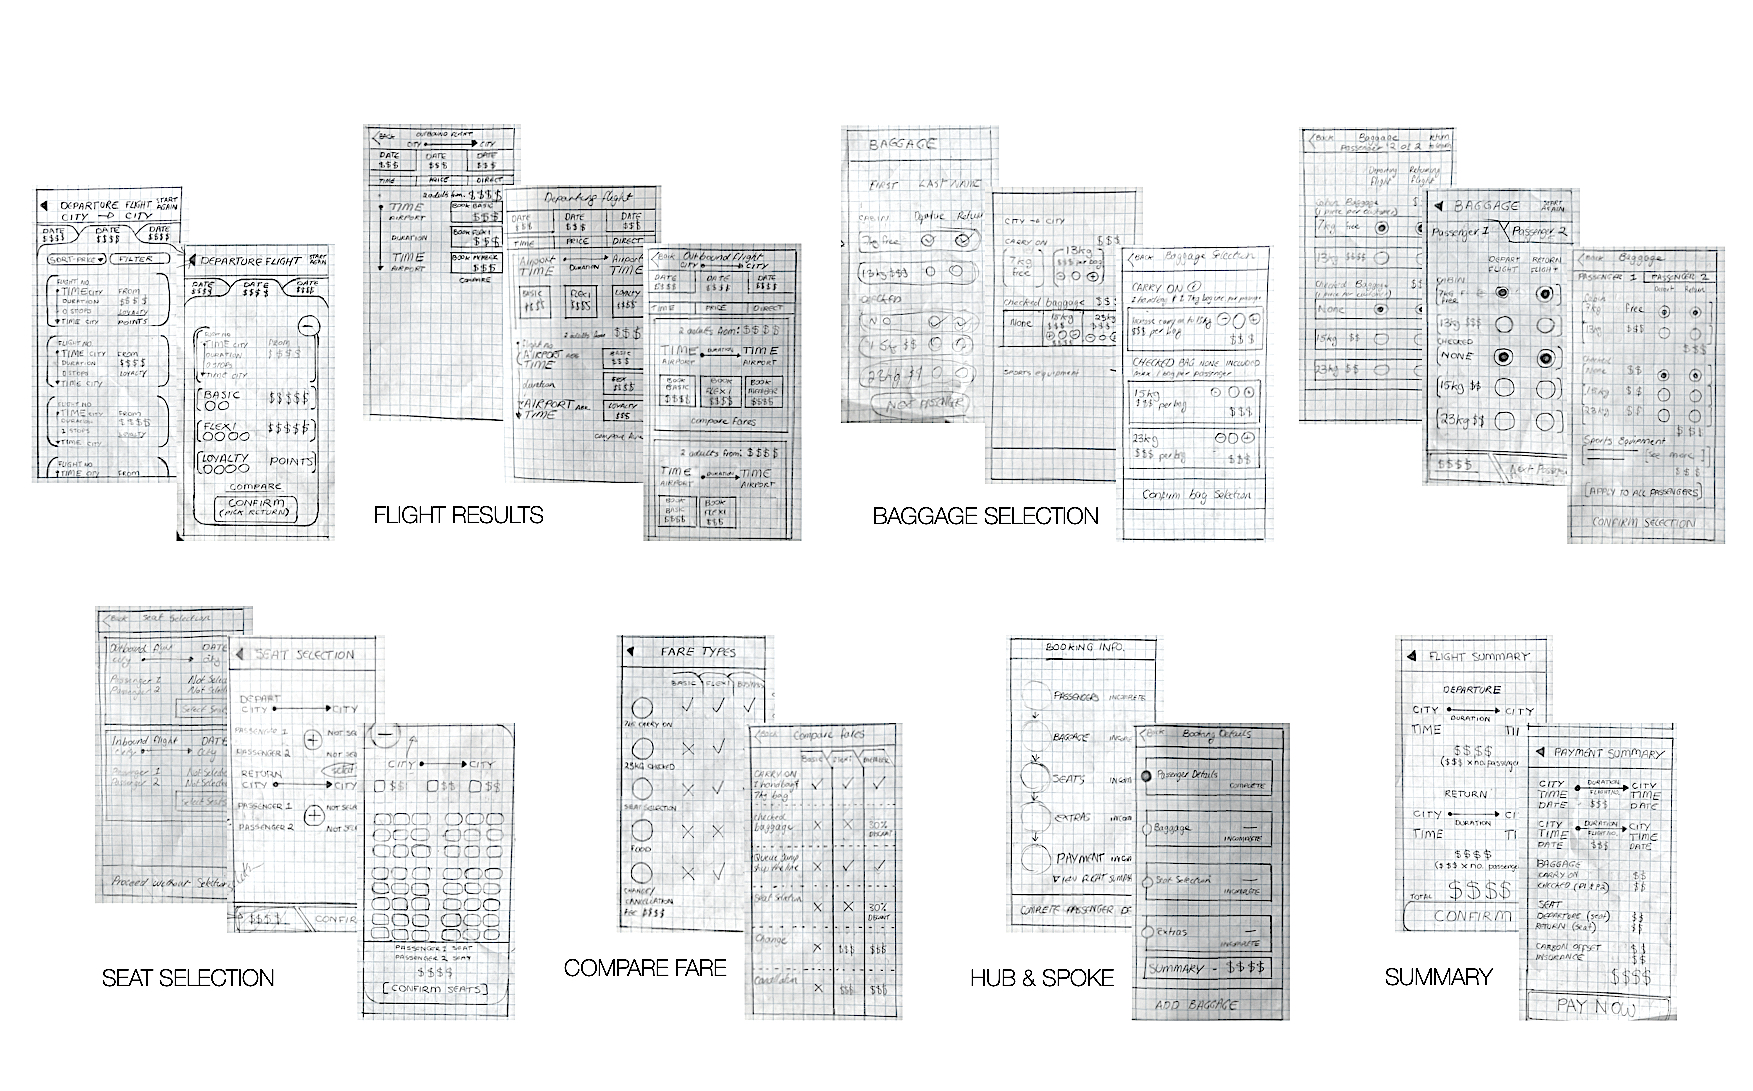 DEPARTURE FLIGHT START AGAIN
CITY → CITY
DATE DATE DATE
$$$$ $$$$ $$$$
SORT-PRICE FILTER
FLIGHT NO
TIME CITY FROM
DURATION $$$$
0 STOPS LOYALTY
TIME CITY POINTS
FLIGHT NO.
TIME CITY FROM
DURATION $$$$
0 STOPS LOYALTY
TIME CITY
FLIGHT NO
TIME CITY FROM
DURATION $$$$
1 STOPS LOYALTY
TIME CITY
FLIGHT NO
TIME CITY FROM
DEPARTURE FLIGHT START AGAIN
DATE DATE DATE
$$$$ $$$$ $$$$
FLIGHT NO
TIME CITY FROM
DURATION $$$$
0 STOPS
TIME CITY
BASIC $$$$$
FLEXI $$$$$
LOYALTY POINTS
COMPARE
CONFIRM
(PICK RETURN)
BACK OUTBOUND FLIGHT
CITY CITY
DATE DATE DATE
$$$ $$$ $$$
TIME PRICE DIRECT
2 adults from $$$$
TIME BOOK BASIC
AIRPORT $$$
DURATION BOOK FLEXI
$$$
TIME
AIRPORT $$$
COMPARE
Departing Flight
DATE DATE DATE
$$$ $$$ $$$
TIME PRICE DIRECT
Airport Airport
TIME DURATION TIME
BASIC FLEXI LOYALTY
$$$$ $$$$ $$$$
2 adults from $$$
flight no
AIRPORT BASIC
TIME $$$
duration FLEXI
$$$$
AIRPORT ARR. LOYALTY
TIME $$$
BACK Outbound Flight
CITY CITY
DATE DATE DATE
$$$ $$$ $$$
TIME PRICE DIRECT
2 adults from: $$$$
TIME DURATION TIME
AIRPORT AIRPORT
BOOK BASIC $$$$ BOOK FLEXI $$$$ BOOK $$$$
compare fares
2 adults from: $$$$
TIME DURATION TIME
AIRPORT AIRPORT
BOOK BASIC $$$$ BOOK FLEXI $$$
FLIGHT RESULTS
BAGGAGE
FIRST LAST NAME
CABIN Depature Return
7kg free
13kg $$$
CHECKED
NO
15kg $$
23kg $$
NEXT PASSENGER
CITY → CITY
CARRY ON $$$
7kg free
13kg
$$$ per bag
checked baggage $$$
None 15kg 23kg
sports equipment
BACK Baggage Selection
CARRY ON
1 handbag & 1 7kg bag inc per passenger
Increase carry on to 15kg
$$$ per bag $$$
CHECKED BAG NONE INCLUDED
max 1 bag per passenger
15kg
$$$ per bag $$$
23kg
$$$ per bag $$$
Confirm bag selection
BAGGAGE SELECTION
Back Baggage
Passenger 2 of 2
Departing Flight Returning Flight
(1 piece per customer)
7kg free
13kg $$$$
Checked Baggage
(1 piece per customer)
None
15kg $$
23kg $$$
BAGGAGE START AGAIN
Passenger 1 Passenger 2
DEPART FLIGHT RETURN FLIGHT
CABIN
7kg free
13kg $$
CHECKED
NONE
15kg $$
23kg $$
$$$$ Next Passen
Back Baggage
PASSENGER 1 PASSENGER 2
Depart Return
Cabin
7kg free
13kg $$$
$$$
Checked
None $$
15kg $$
23kg $$
$$$
Sports Equipment
[see more]
$$$
[APPLY TO ALL PASSENGERS]
CONFIRM SELECTION
Back Seat Selection
Outbound flight DATE
City City
Passenger 1 Not Selec
Passenger 2 Not Selec
Select Seat
Inbound flight DATE
City City
Passenger 1 Not Selecte
Passenger 2 Not Selecte
Select Seats
Proceed without Selecti
SEAT SELECTION
DEPART
CITY CITY
PASSENGER 1 NOT SE
PASSENGER 2 NOT SE
RETURN
CITY CITY
PASSENGER 1 NOT SELE
PASSENGER 2 NOT SEL
$$$$ CONFIR
CITY CITY
$$ $$ $$
PASSENGER 1 SEAT
PASSENGER 2 SEAT
$$$$
[CONFIRM SEATS]
SEAT SELECTION
FARE TYPES
BASIC FLEXI BUSINESS
7KG CARRY ON
23KG CHECKED
SEAT SELECTION
FOOD
CHANGE/
CANCELLATION
FEE $$$$
Back Compare fares
BASIC FLEXI
CARRY ON
1 handbag &
7kg bag
checked baggage 30%
Queue Jump
Seat Selection 30%
Change $$$ $$$
Cancellation $$$ $$$
COMPARE FARE
BOOKING INFO.
PASSENGERS INCOMPLETE
BAGGAGE INCOM
SEATS INCOM
EXTRAS INCOM
PAYMENT INCOM
VIEW FLIGHT SUMMA
COMPLETE PASSENGER DE
Back Booking Details
Passenger Details
COMPLETE
Baggage
INCOMPLETE
Seat Selection
INCOMPLETE
Extras
INCOMPLETE
SUMMARY - $$$$
ADD BAGGAGE
HUB & SPOKE
FLIGHT SUMMARY
DEPARTURE
CITY CITY
DURATION
TIME TI
$$$$
($$$ x no. passenger
RETURN
CITY CI
DURATION
TIME TI
$$$$
($$$ x no. passenge
TOTAL $$$$
CONFIRM
PAYMENT SUMMARY
CITY DURATION CITY
TIME FLIGHT NO. TIME
DATE $$$ DATE
CITY DURATION CITY
TIME FLIGHT NO. TIME
DATE $$$ DATE
BAGGAGE
CARRY ON $$
CHECKED (P1 & P2) $$
SEAT
DEPARTURE (seat) $$
RETURN (seat) $$
CARBON OFFSET $$
INSURANCE $$
$$$$
PAY NOW
SUMMARY